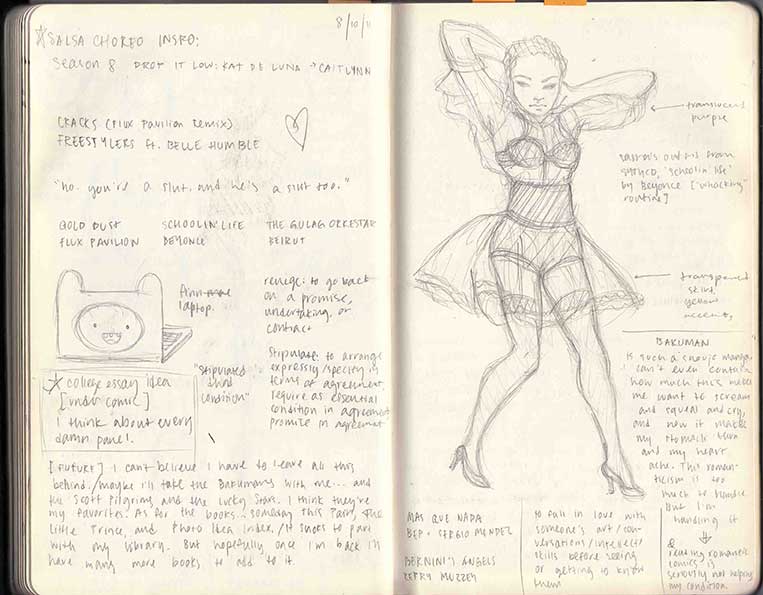 8/10/11
☆SALSA CHOREO INSPO:
SEASON 8 DROP IT LOW: KAT DE LUNA → CAITLYNN
CRACKS (FLUX PAVILION REMIX)
FREESTYLERS ft. BELLE HUMBLE
"no. you're a slut. and he's a slut too."
GOLD DUST
FLUX PAVILION
SCHOOLIN' LIFE
BEYONCE
THE GULAG ORKESTAR
BEIRUT
Finn
laptop.
renege: to go back
on a promise,
undertaking, or
contract
"stipulated
condition"
stipulate: to arrange
expressly/specify in
terms of agreement,
require as essential
condition in agreement
promise in agreement
☆ college essay idea
[under comic]
I think about every
damn panel.
[FUTURE] I can't believe I have to leave all this
behind. maybe I'll take the Bakumans with me... and
the Scott Pilgrims and the Lucky Stars. I think they're
my favorites. As for the books... someday this Pain, The
Little Prince, and Photo Idea Index. It sucks to part
with my library. But hopefully once I'm back I'll
have many more books to add to it.
translucent
purple
outfit from
SYTYCD, 'schoolin' life'
by Beyonce ['whacking'
routine]
transparent
skirt,
yellow
accents,
BAKUMAN
is such a manga
I can't even contain
how much this makes
me want to scream
and squeal and cry,
and now it makes
my stomach turn
and my heart
ache. This roman-
ticism is too
much to handle
But I'm
handling it
reading romantic
comics is
seriously not helping
my condition
MAS QUE NADA
BEP + SERGIO MENDEZ
BERNINI'S ANGELS
KERRY MUZZEY
to fall in love with
someone's art/con-
versations/intellect/
skills before seeing
or getting to know
them